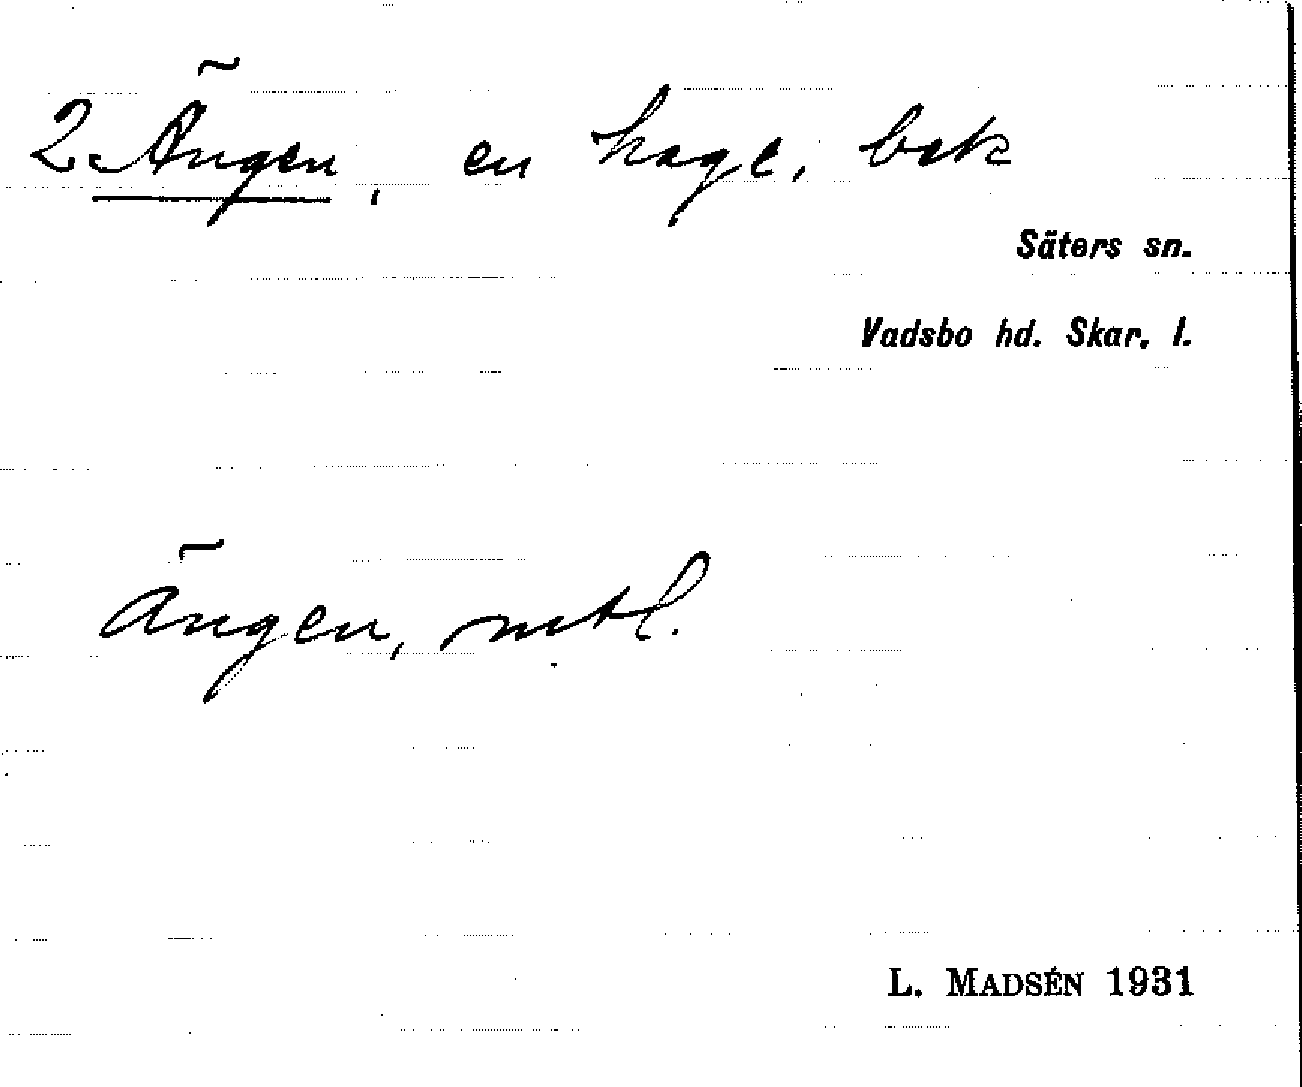 2. Ängen, en hage, bek
Säters sn.
Vadsbo hd. Skar. l.
Ängen, mtl.
L. MADSÉN 1931